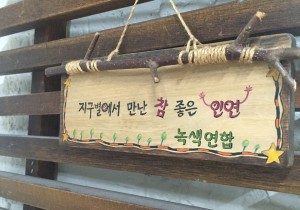 지구별에서 만난 참 좋은 인연
녹색연합